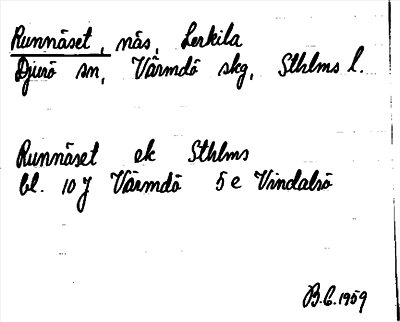 Runnäset, näs, Lerkila
Djurö sn, Värmdö skg, Sthlms l.
Runnäset ek Sthlms
bl. 10 J Värmdö 5 e Vindalsö
B.G. 1959